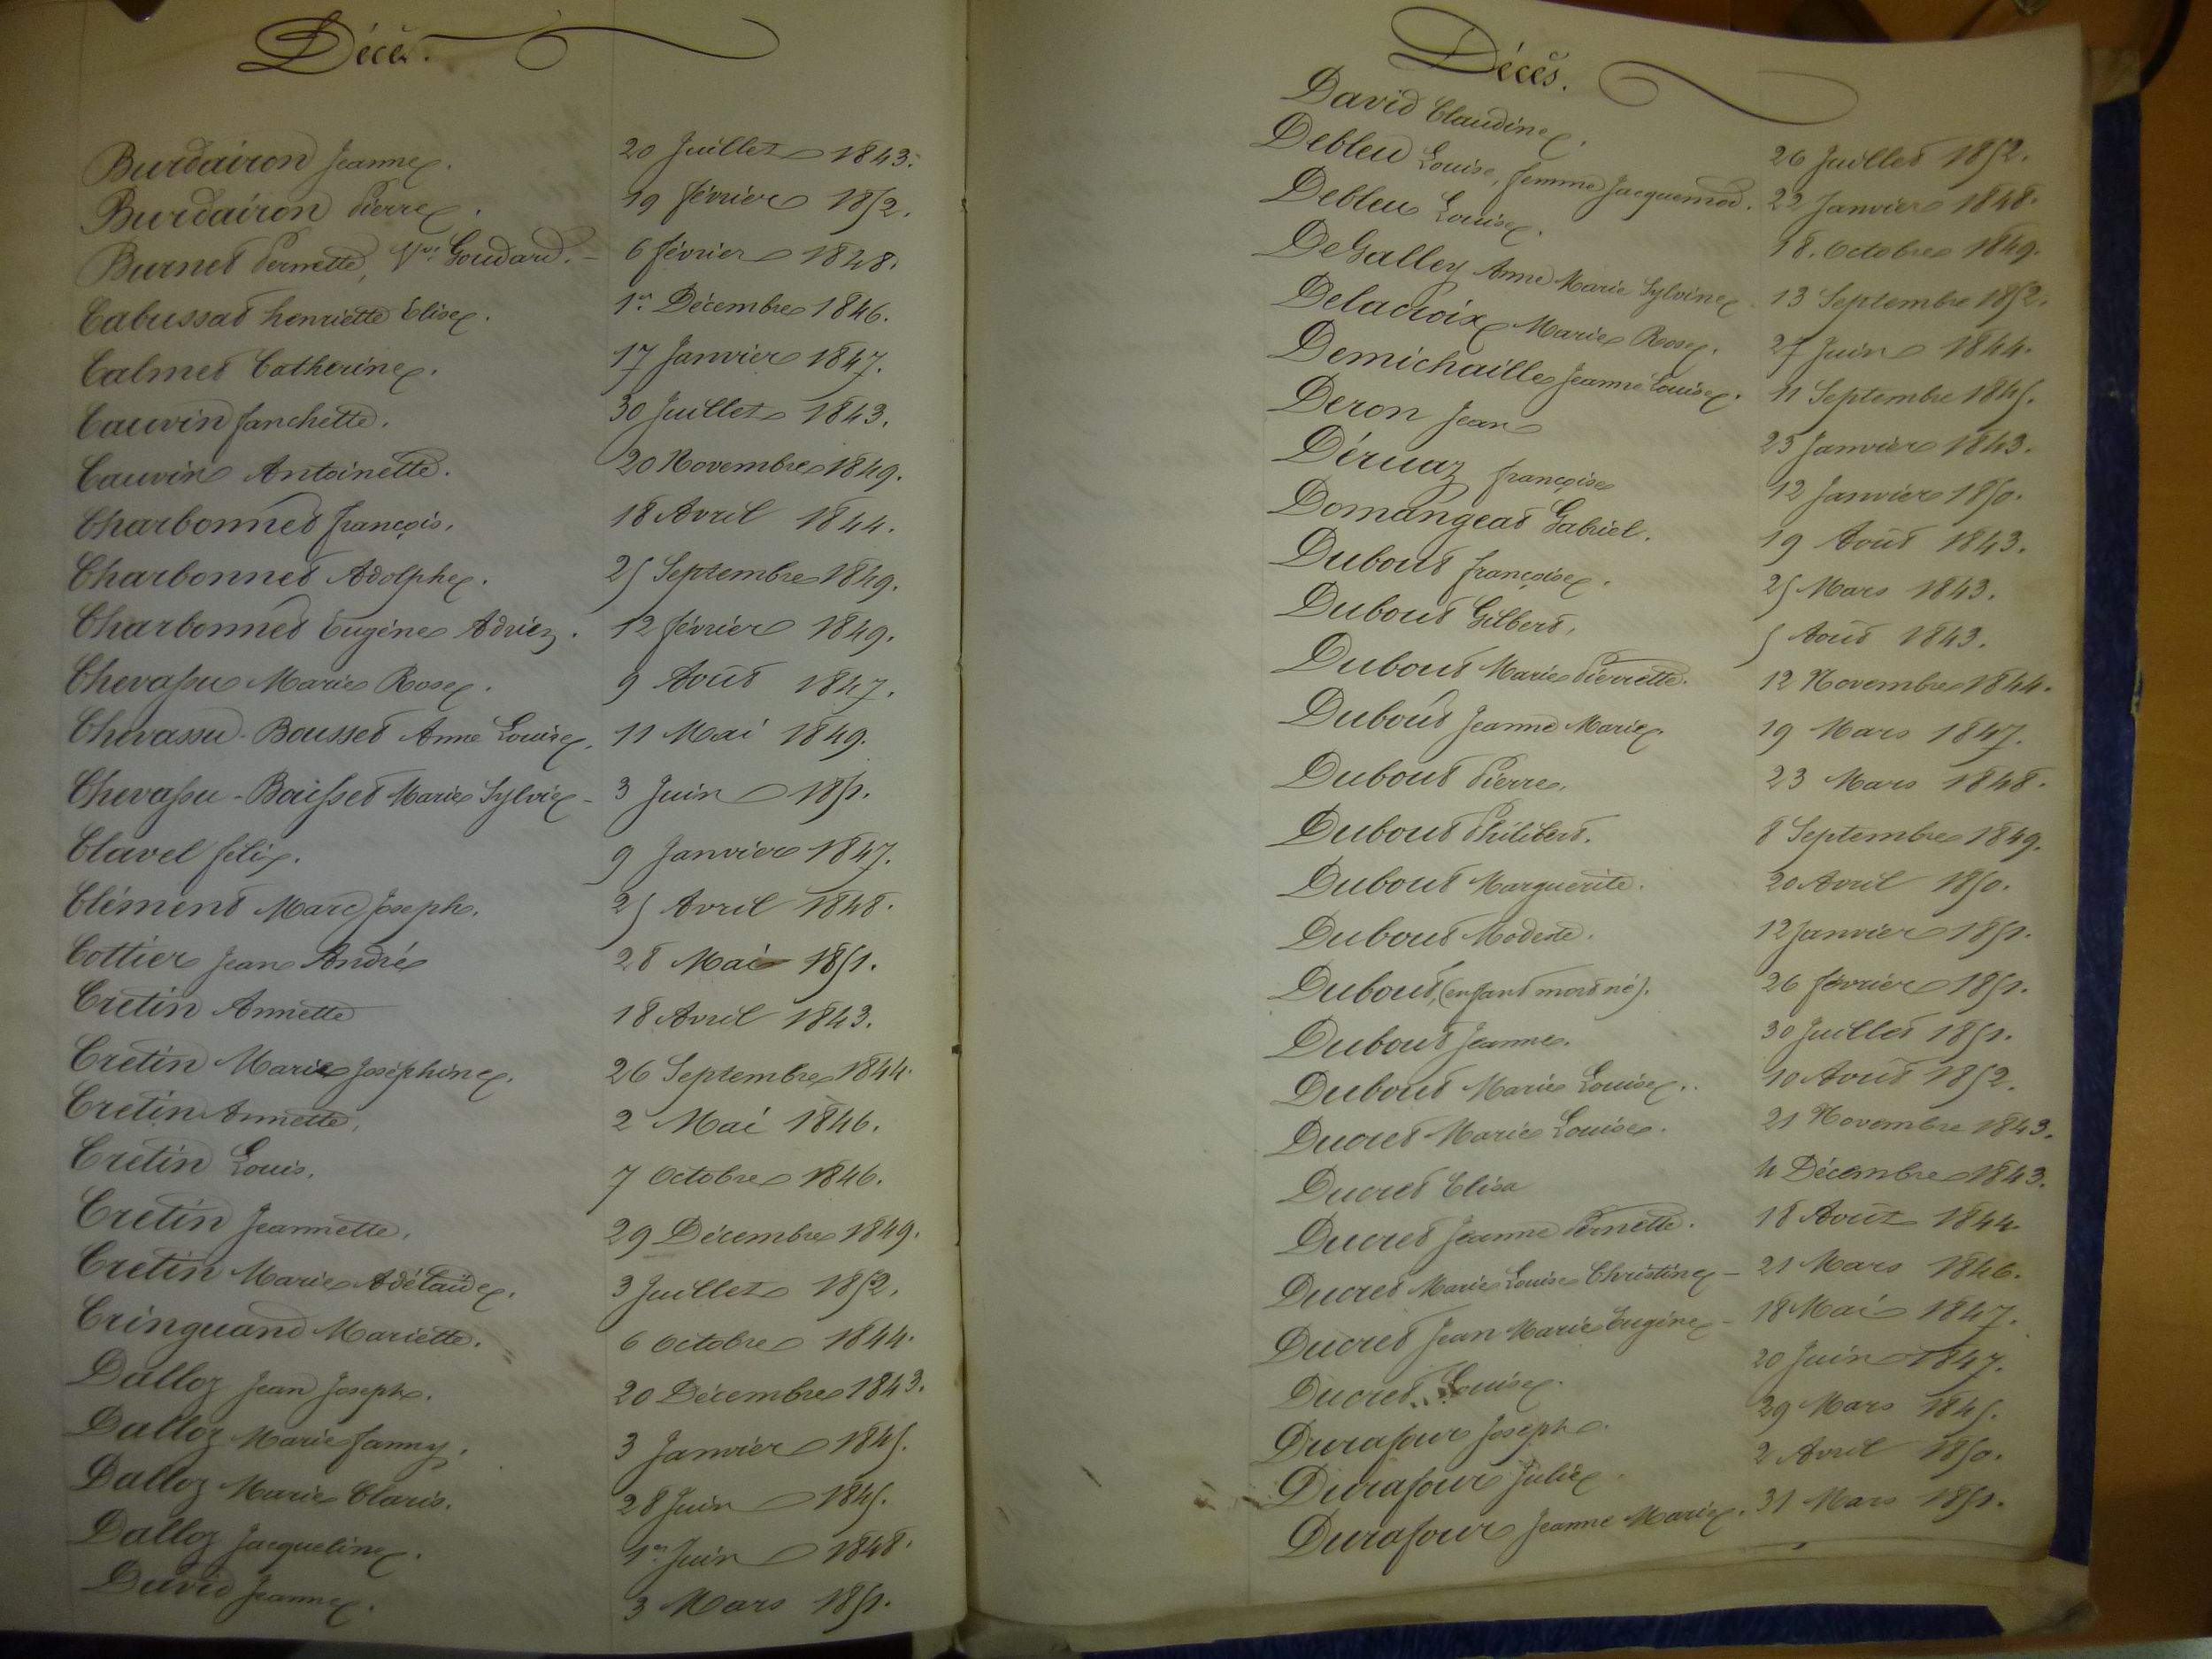 Décès.
Burdairon Jeanne. 20 Juillet 1843.
Burdairon Pierre. 19 février 1852.
Burnet Pernette, Vve Goudard. - 6 février 1848.
Cabussat henriette Elise. 1er Décembre 1846.
Calmet Catherine. 17 Janvier 1847.
Cauvin fanchette. 30 Juillet 1843.
Cauvin Antoinette. 20 Novembre 1849.
Charbonnet françois. 18 Avril 1844.
Charbonnet Adolphe. 25 Septembre 1849.
Charbonnet Eugène Adrien. 12 février 1849.
Chevassu Marie Rose. 9 Août 1847.
Chevassu-Bousset Anne Louise. 11 Mai 1849.
Chevassu-Boisset Marie Sylvie - 3 Juin 1851.
Clavel félix. 9 Janvier 1847.
Clément Marc Joseph. 25 Avril 1848.
Cottier Jean André 28 Mai 1851.
Cretin Annette 18 Avril 1843.
Cretin Marie Joséphine. 26 Septembre 1844.
Cretin Annette. 2 Mai 1846.
Cretin Louis. 7 Octobre 1846.
Cretin Jeannette. 29 Décembre 1849.
Cretin Marie Adélaïde. 3 Juillet 1852.
Cringuand Mariette. 6 Octobre 1844.
Dalloz Jean Joseph. 20 Décembre 1843.
Dalloz Marie fanny. 3 Janvier 1845.
Dalloz Marie Claris. 28 Juin 1845.
Dalloz Jacqueline. 1er Juin 1848.
David Jeanne. 3 Mars 1851.
Décès.
David Claudine. 26 Juillet 1852.
Debleu Louise, femme Jacquemod. 22 Janvier 1848.
Debleu Louise. 18. Octobre 1849.
DeGalley Anne Marie Sylvine 13 Septembre 1852.
Delacroix Marie Rose. 27 Juin 1844.
Demichaille Jeanne Louise. 11 Septembre 1845.
Deron Jean 25 Janvier 1843.
Déruaz françoise 12 Janvier 1850.
Domangeat Gabriel. 19 Août 1843.
Dubout françoise. 25 Mars 1843.
Dubout Gilbert. 5 Août 1843.
Dubout Marie Pierrette. 12 Novembre 1844.
Dubout Jeanne Marie. 19 Mars 1847.
Dubout Pierre. 23 Mars 1848.
Dubout Philibert. 8 Septembre 1849.
Dubout Marguerite. 20 Avril 1850.
Dubout Modeste. 12 Janvier 1851.
Dubout, (enfant mort né). 26 février 1851.
Dubout Jeanne. 30 Juillet 1851.
Dubout Marie Louise. 10 Août 1852.
Ducret Marie Louise. 21 Novembre 1843.
Ducret Elisa 4 Décembre 1843.
Ducret Jeanne Pernette. 18 Août 1844
Ducret Marie Louise Christine - 21 Mars 1846.
Ducret Jean Marie Eugène - 18 Mai 1847.
Ducret Louise. 20 Juin 1847.
Durafour Joseph. 29 Mars 1845.
Durafour Julie 2 Avril 1850.
Durafour Jeanne Marie. 31 Mars 1851.